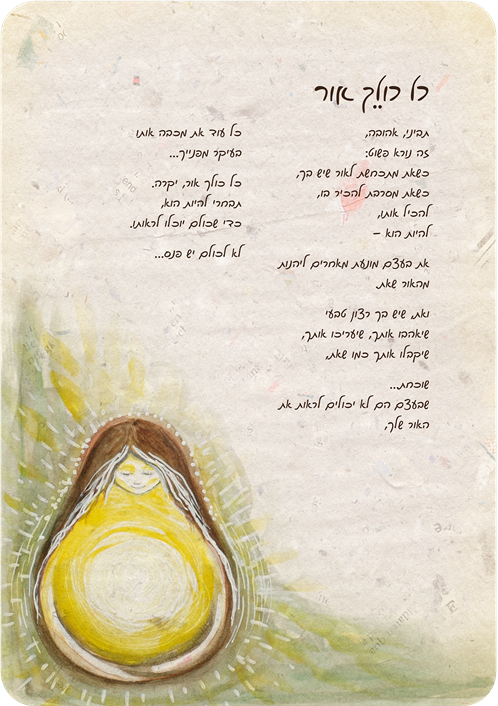 כל כולֵך אור
תביני, אהובה,
זה נורא פשוט:
כשאת מתכחשת לאור שיש בך,
כשאת מסרבת להכיר בו,
להכיל אותו,
להיות הוא –
את בעצם מונעת מאחרים ליהנות
מהאור שאת.
ואת, שיש בך רצון טבעי
שיאהבו אותך, שיעריכו אותך,
שיקבלו אותך כמו שאת,
שוכחת...
שבעצם הם לא יכולים לראות את
האור שלך,
כל עוד את מכבה אותו
בעיקר מפנייך...
כל כולך אור, יקרה.
תבחרי להיות הוא,
כדי שכולם יוכלו לראותו.
לא לכולם יש פנס...